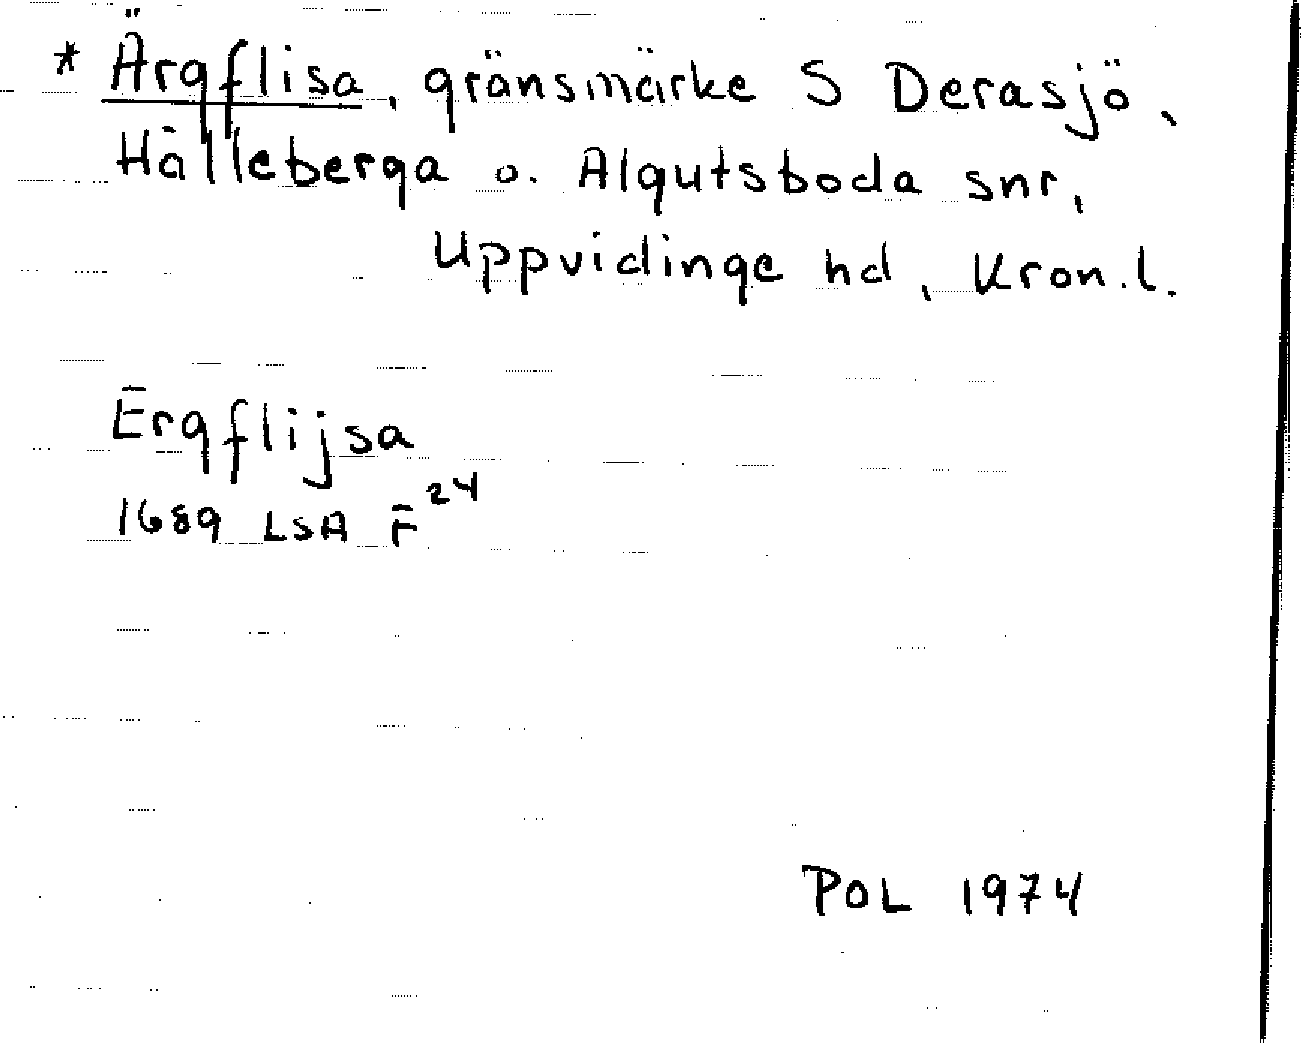 * Ärgflisa, gränsmärke S Derasjö,
Hälleberga o. Algutsboda snr,
Uppvidinge hd, Kron.l.
Ergflijsa
1689 LSA F²⁴
POL 1974